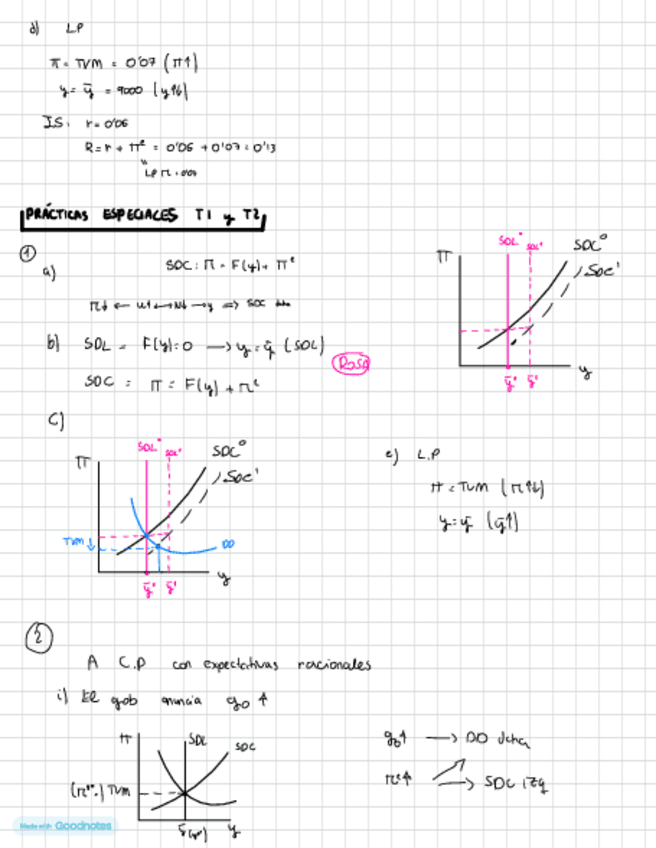 d) LP
π = TVM = 0'07 (π↑)
y = ȳ = 9000 (y↑↓)
IS: r = 0'06
R = r + πᵉ = 0'06 + 0'07 = 0'13
LP π = 0'07
PRÁCTICAS ESPECIALES T1 y T2
①
a) SOC: π = F(y) + πᵉ
b) SOL = F(y) = 0 → y = ȳ (SOL)
ROSA
SOC = π = F(y) + πᵉ
π SOL° SOL' SOC° SOC'
ȳ° ȳ' y
c)
π SOL° SOL' SOC° SOC'
TVM ↓ DD
ȳ° ȳ' y
e) L.P
π = TVM (π↑↓)
y = ȳ (ȳ↑)
②
A C.P con expectativas racionales
i) El gob anuncia g₀ ↑
π SOL SOC
TVM
y
g₀↑ → DD dcha
πᵉ↑ → SOC izq
Made with Goodnotes